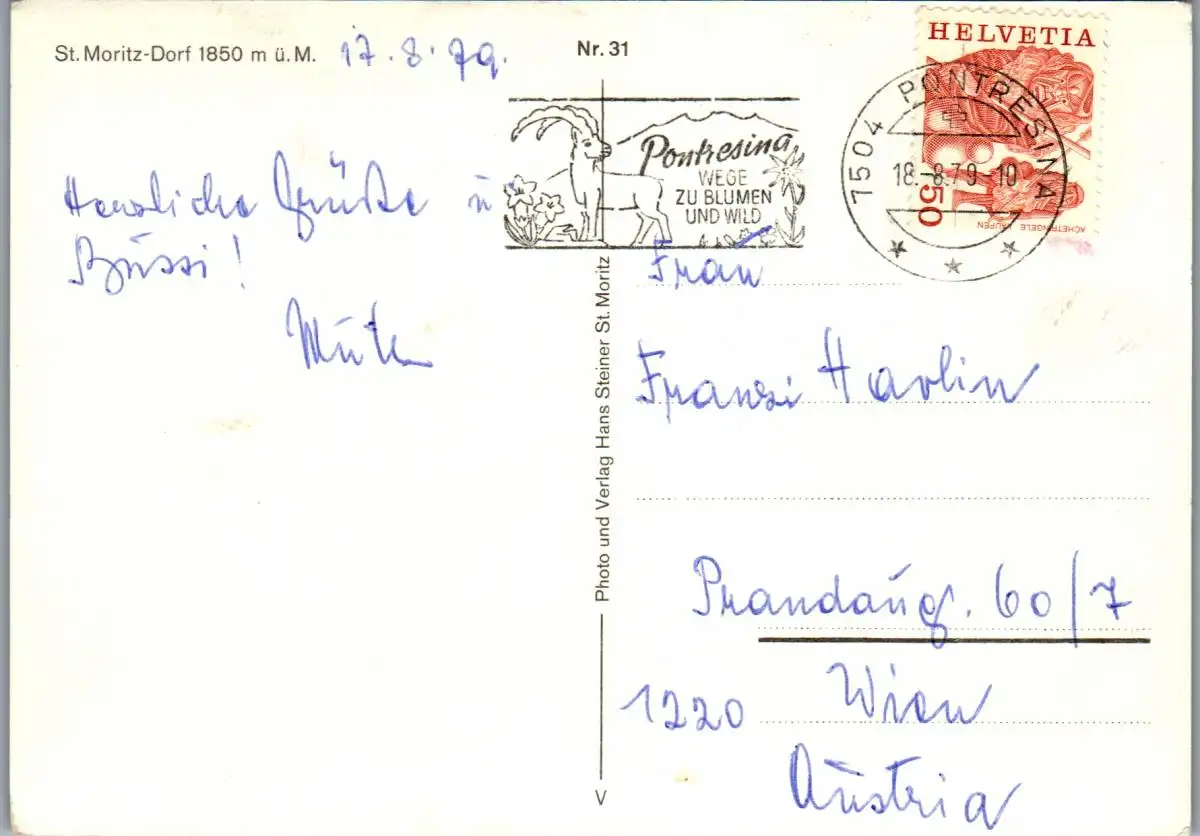 St. Moritz-Dorf 1850 m ü. M.
17. 8. 79.
Nr. 31
Herzliche Grüße u
Bussi!
Mutti
Pontresina
WEGE
ZU BLUMEN
UND WILD
HELVETIA
50
ACHETRINGELE LAUPEN
7504 PONTRESINA
18.-8.79-10
Photo und Verlag Hans Steiner St. Moritz
V
Frau
Franzi Havlin
Prandaug. 60/7
1220 Wien
Austria